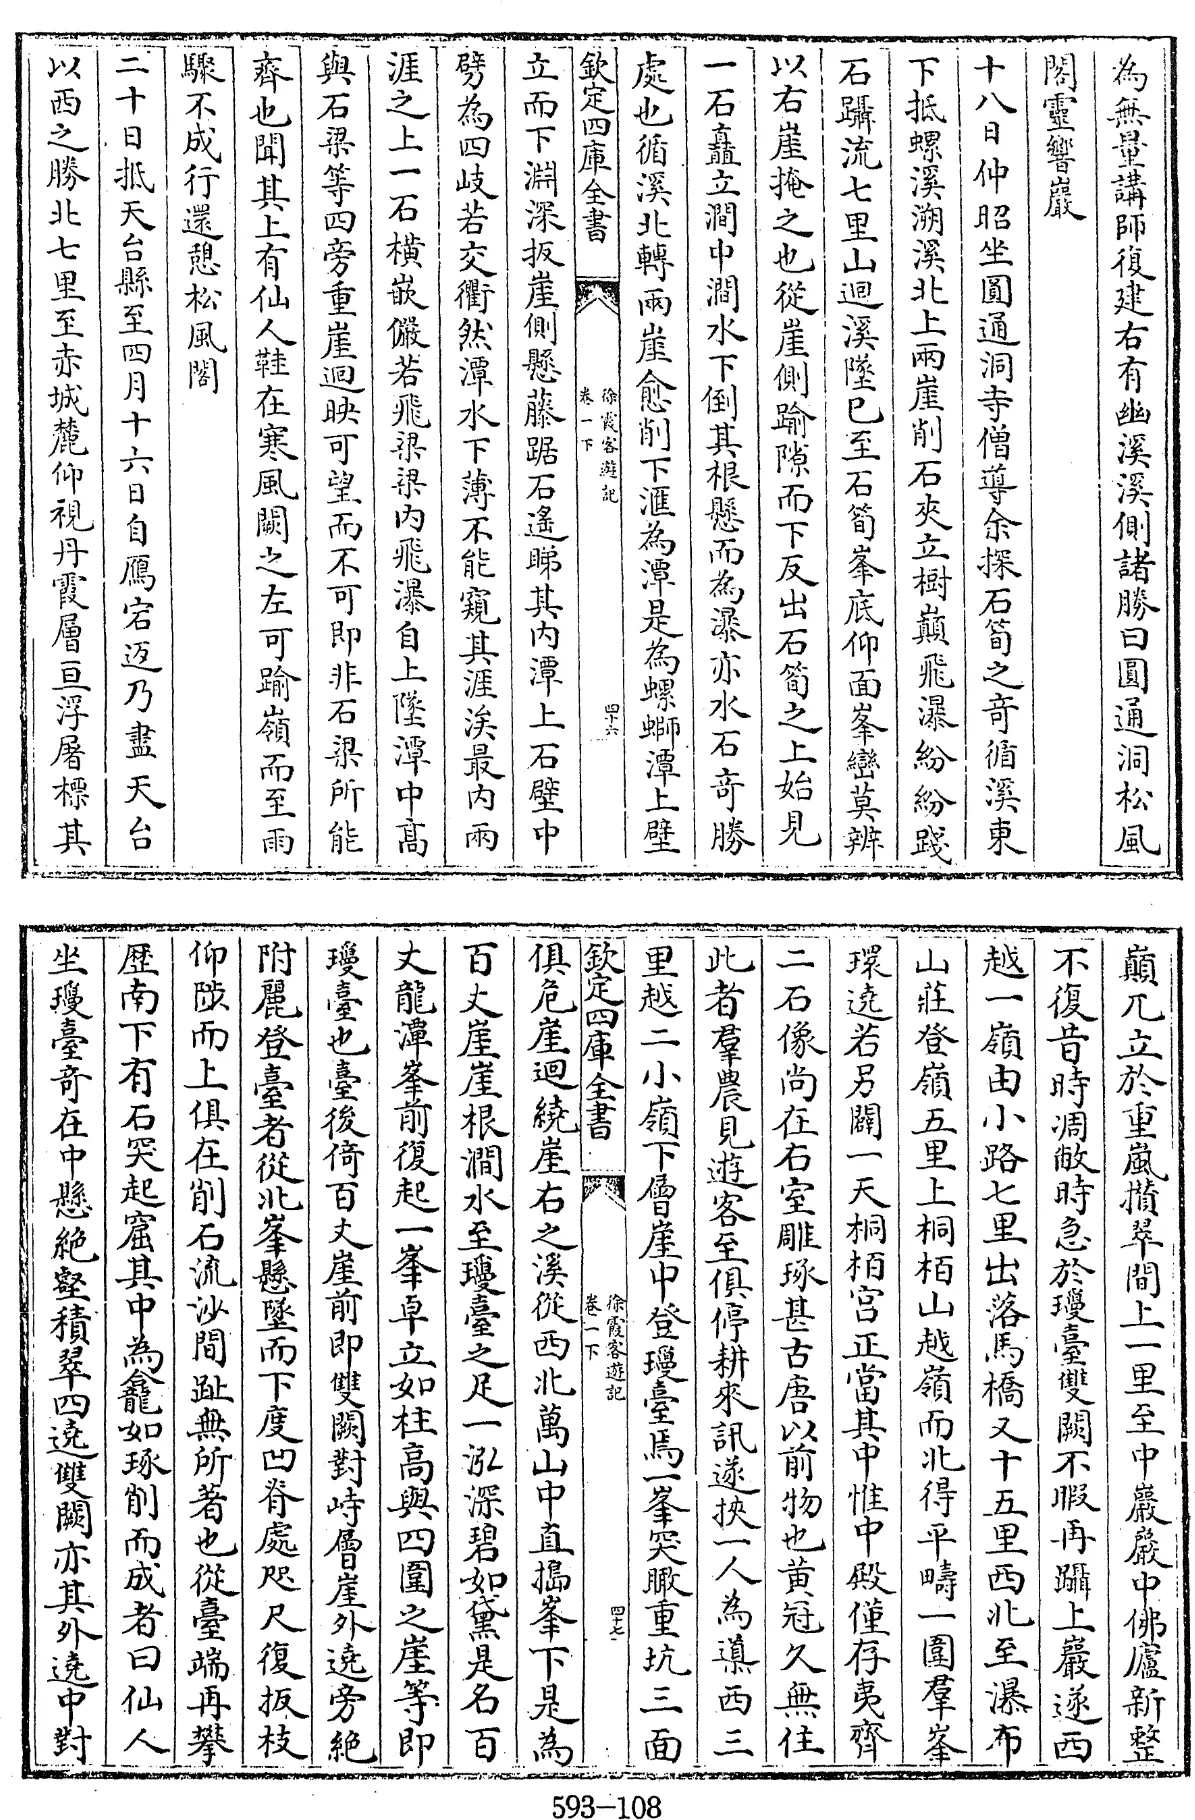 為無量講師復建右有幽溪溪側諸勝曰圓通洞松風
閣靈響巖
十八日仲昭坐圓通洞寺僧導余探石筍之奇循溪東
下抵螺溪溯溪北上兩崖削石夾立樹巔飛瀑紛紛踐
石躡流七里山迴溪墜已至石筍峯底仰面峯巒莫辨
以右崖掩之也從崖側踰隙而下反出石筍之上始見
一石矗立澗中澗水下倒其根懸而為瀑亦水石竒勝
處也循溪北轉兩崖愈削下滙為潭是為螺螄潭上壁
欽定四庫全書
徐霞客遊記
卷一下
四十六
立而下淵深扳崖側懸藤踞石遙睇其内潭上石壁中
劈為四岐若交衢然潭水下薄不能窺其涯涘最内兩
涯之上一石横嵌儼若飛梁梁内飛瀑自上墜潭中高
與石梁等四旁重崖迴映可望而不可即非石梁所能
齊也聞其上有仙人鞋在寒風闕之左可踰嶺而至雨
驟不成行還憩松風閣
二十日抵天台縣至四月十六日自鴈宕返乃盡天台
以西之勝北七里至赤城麓仰視丹霞層亘浮屠標其
巔兀立於重嵐攢翠間上一里至中巖巖中佛廬新整
不復昔時凋敝時急於瓊臺雙闕不暇再躡上巖遂西
越一嶺由小路七里出落馬橋又十五里西北至瀑布
山莊登嶺五里上桐栢山越嶺而北得平疇一圍羣峯
環遶若另闢一天桐栢宫正當其中惟中殿僅存夷齊
二石像尚在右室雕琢甚古唐以前物也黄冠久無住
此者羣農見遊客至俱停耕來訊遂挾一人為導西三
里越二小嶺下層崖中登瓊臺焉一峯突瞰重坑三面
欽定四庫全書
徐霞客遊記
卷一下
四十七
俱危崖迴繞崖右之溪從西北萬山中直搗峯下是為
百丈崖崖根澗水至瓊臺之足一泓深碧如黛是名百
丈龍潭峯前復起一峯卓立如柱高與四圍之崖等即
瓊臺也臺後倚百丈崖前即雙闕對峙層崖外遶旁絶
附麗登臺者從北峯懸墜而下度凹脊處咫尺復扳枝
仰陟而上俱在削石流沙間趾無所著也從臺端再攀
歴南下有石突起窟其中為龕如琢削而成者曰仙人
坐瓊臺竒在中懸絶壑積翠四遶雙闕亦其外遶中對
593-108